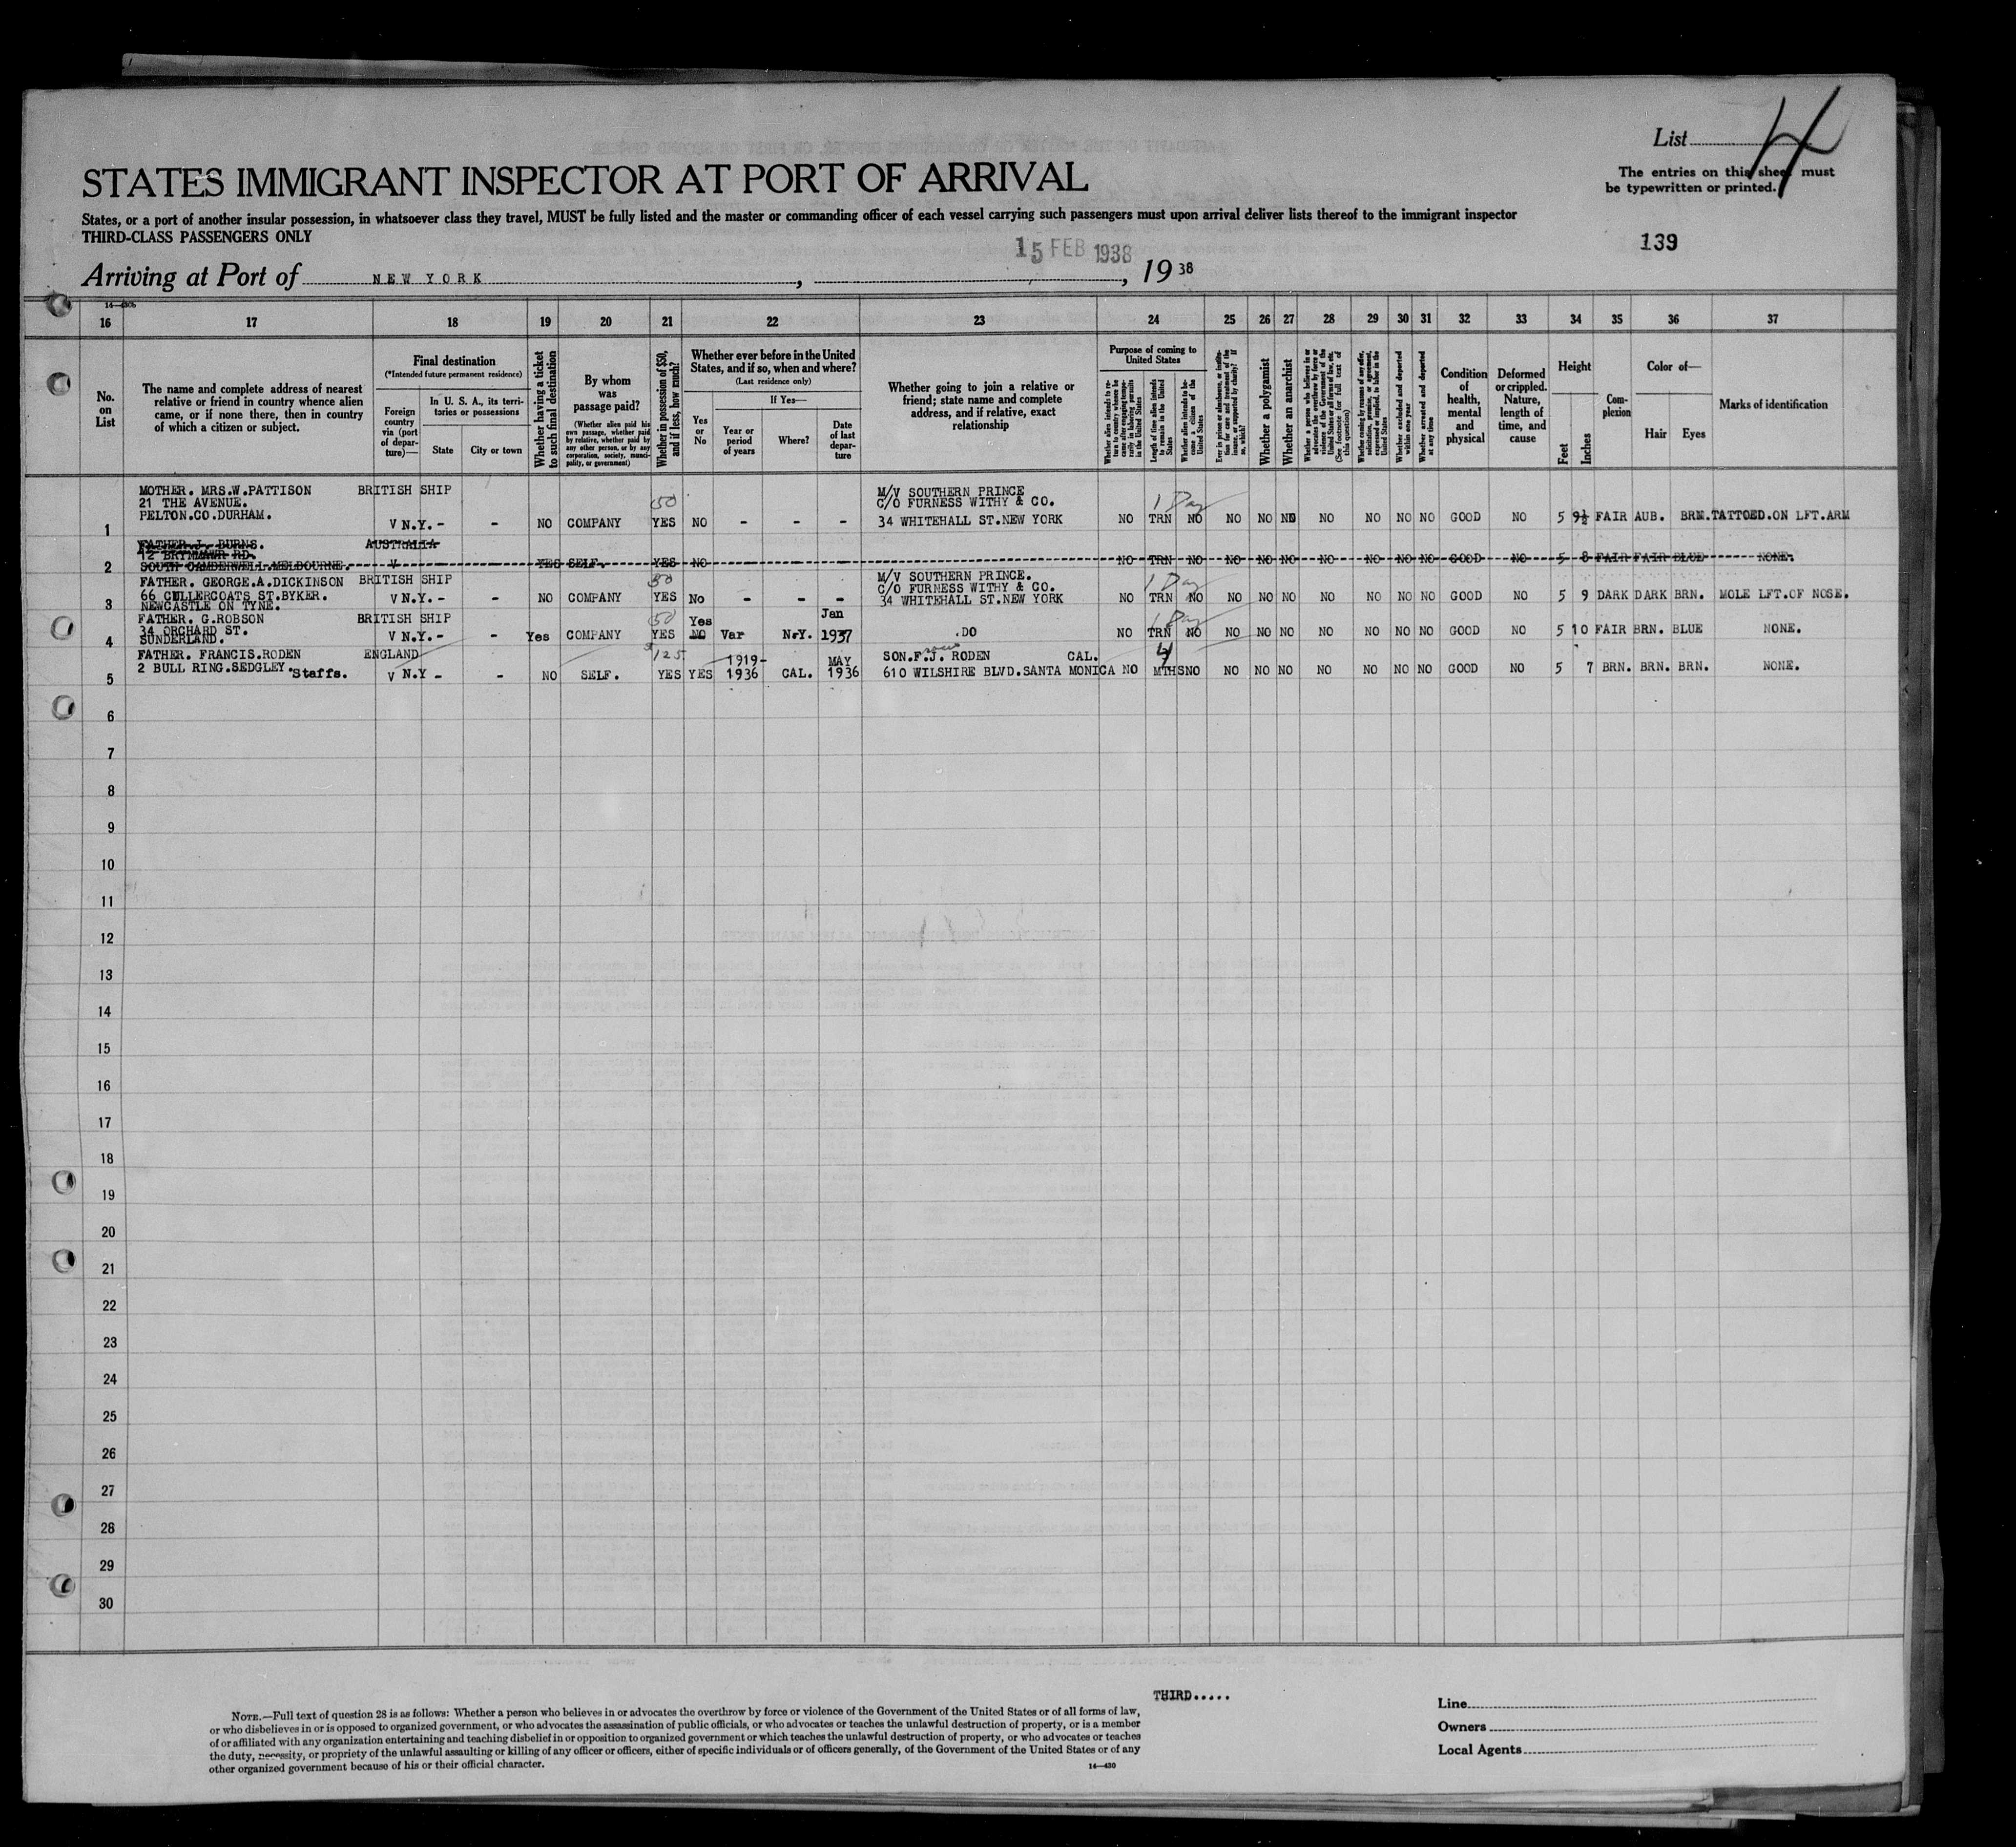 List 4
The entries on this sheet must
be typewritten or printed.
STATES IMMIGRANT INSPECTOR AT PORT OF ARRIVAL
States, or a port of another insular possession, in whatsoever class they travel, MUST be fully listed and the master or commanding officer of each vessel carrying such passengers must upon arrival deliver lists thereof to the immigrant inspector
THIRD-CLASS PASSENGERS ONLY
139
15 FEB 1938
Arriving at Port of NEW YORK, , 19 38
14—430b
16 17 18 19 20 21 22 23 24 25 26 27 28 29 30 31 32 33 34 35 36 37
No. on List
The name and complete address of nearest relative or friend in country whence alien came, or if none there, then in country of which a citizen or subject.
Final destination
(*Intended future permanent residence)
Foreign country via (port of departure)—
In U. S. A., its territories or possessions
State
City or town
Whether having a ticket to such final destination
By whom was passage paid?
(Whether alien paid his own passage, whether paid by relative, whether paid by any other person, or by any corporation, society, municipality, or government)
Whether in possession of $50, and if less, how much?
Whether ever before in the United States, and if so, when and where?
(Last residence only)
Yes or No
If Yes—
Year or period of years
Where?
Date of last departure
Whether going to join a relative or friend; state name and complete address, and if relative, exact relationship
Purpose of coming to United States
Length of time alien intends to remain in the United States
Whether alien intends to become a citizen of the United States
Whether a polygamist
Whether an anarchist
Whether arrested and deported at any time
Condition of health, mental and physical
Deformed or crippled. Nature, length of time, and cause
Height
Feet
Inches
Complexion
Color of—
Hair
Eyes
Marks of identification
MOTHER. MRS.W.PATTISON BRITISH SHIP M/V SOUTHERN PRINCE
21 THE AVENUE. 50 C/O FURNESS WITHY & CO. 1 Day
PELTON.CO.DURHAM.
1 V N.Y. - - NO COMPANY YES NO - - - 34 WHITEHALL ST.NEW YORK NO TRN NO NO NO NO NO NO NO NO GOOD NO 5 9½ FAIR AUB. BRN. TATTOED.ON LFT.ARM
FATHER J. BURNS. AUSTRALIA
12 RD.
2 SOUTH CAMDERWELL.MELBOURNE. V YES SELF. YES NO NO TRN NO NO NO NO NO NO NO NO GOOD NO 5 8 FAIR FAIR BLUE NONE.
FATHER. GEORGE.A.DICKINSON BRITISH SHIP 50 M/V SOUTHERN PRINCE. 1 Day
66 CULLERCOATS ST.BYKER. C/O FURNESS WITHY & CO.
3 NEWCASTLE ON TYNE. V N.Y. - - NO COMPANY YES No - - - 34 WHITEHALL ST.NEW YORK NO TRN NO NO NO NO NO NO NO NO GOOD NO 5 9 DARK DARK BRN. MOLE LFT.OF NOSE.
FATHER. G.ROBSON BRITISH SHIP 50 Yes Jan 1 Day
34 ORCHARD ST.
4 SUNDERLAND. V N.Y. - - Yes COMPANY YES NO Var N.Y. 1937 .DO NO TRN NO NO NO NO NO NO NO NO GOOD NO 5 10 FAIR BRN. BLUE NONE.
FATHER. FRANCIS.RODEN ENGLAND $125 1919- MAY SON.F.J. RODEN CAL. 4
5 2 BULL RING.SEDGLEY.Staffs. V N.Y - - NO SELF. YES YES 1936 CAL. 1936 610 WILSHIRE BLVD.SANTA MONICA NO MTHS NO NO NO NO NO NO NO NO GOOD NO 5 7 BRN. BRN. BRN. NONE.
6
7
8
9
10
11
12
13
14
15
16
17
18
19
20
21
22
23
24
25
26
27
28
29
30
THIRD.....
NOTE.—Full text of question 28 is as follows: Whether a person who believes in or advocates the overthrow by force or violence of the Government of the United States or of all forms of law,
or who disbelieves in or is opposed to organized government, or who advocates the assassination of public officials, or who advocates or teaches the unlawful destruction of property, or is a member
of or affiliated with any organization entertaining and teaching disbelief in or opposition to organized government or which teaches the unlawful destruction of property, or who advocates or teaches
the duty, necessity, or propriety of the unlawful assaulting or killing of any officer or officers, either of specific individuals or of officers generally, of the Government of the United States or of any
other organized government because of his or their official character.
14—430
Line
Owners
Local Agents